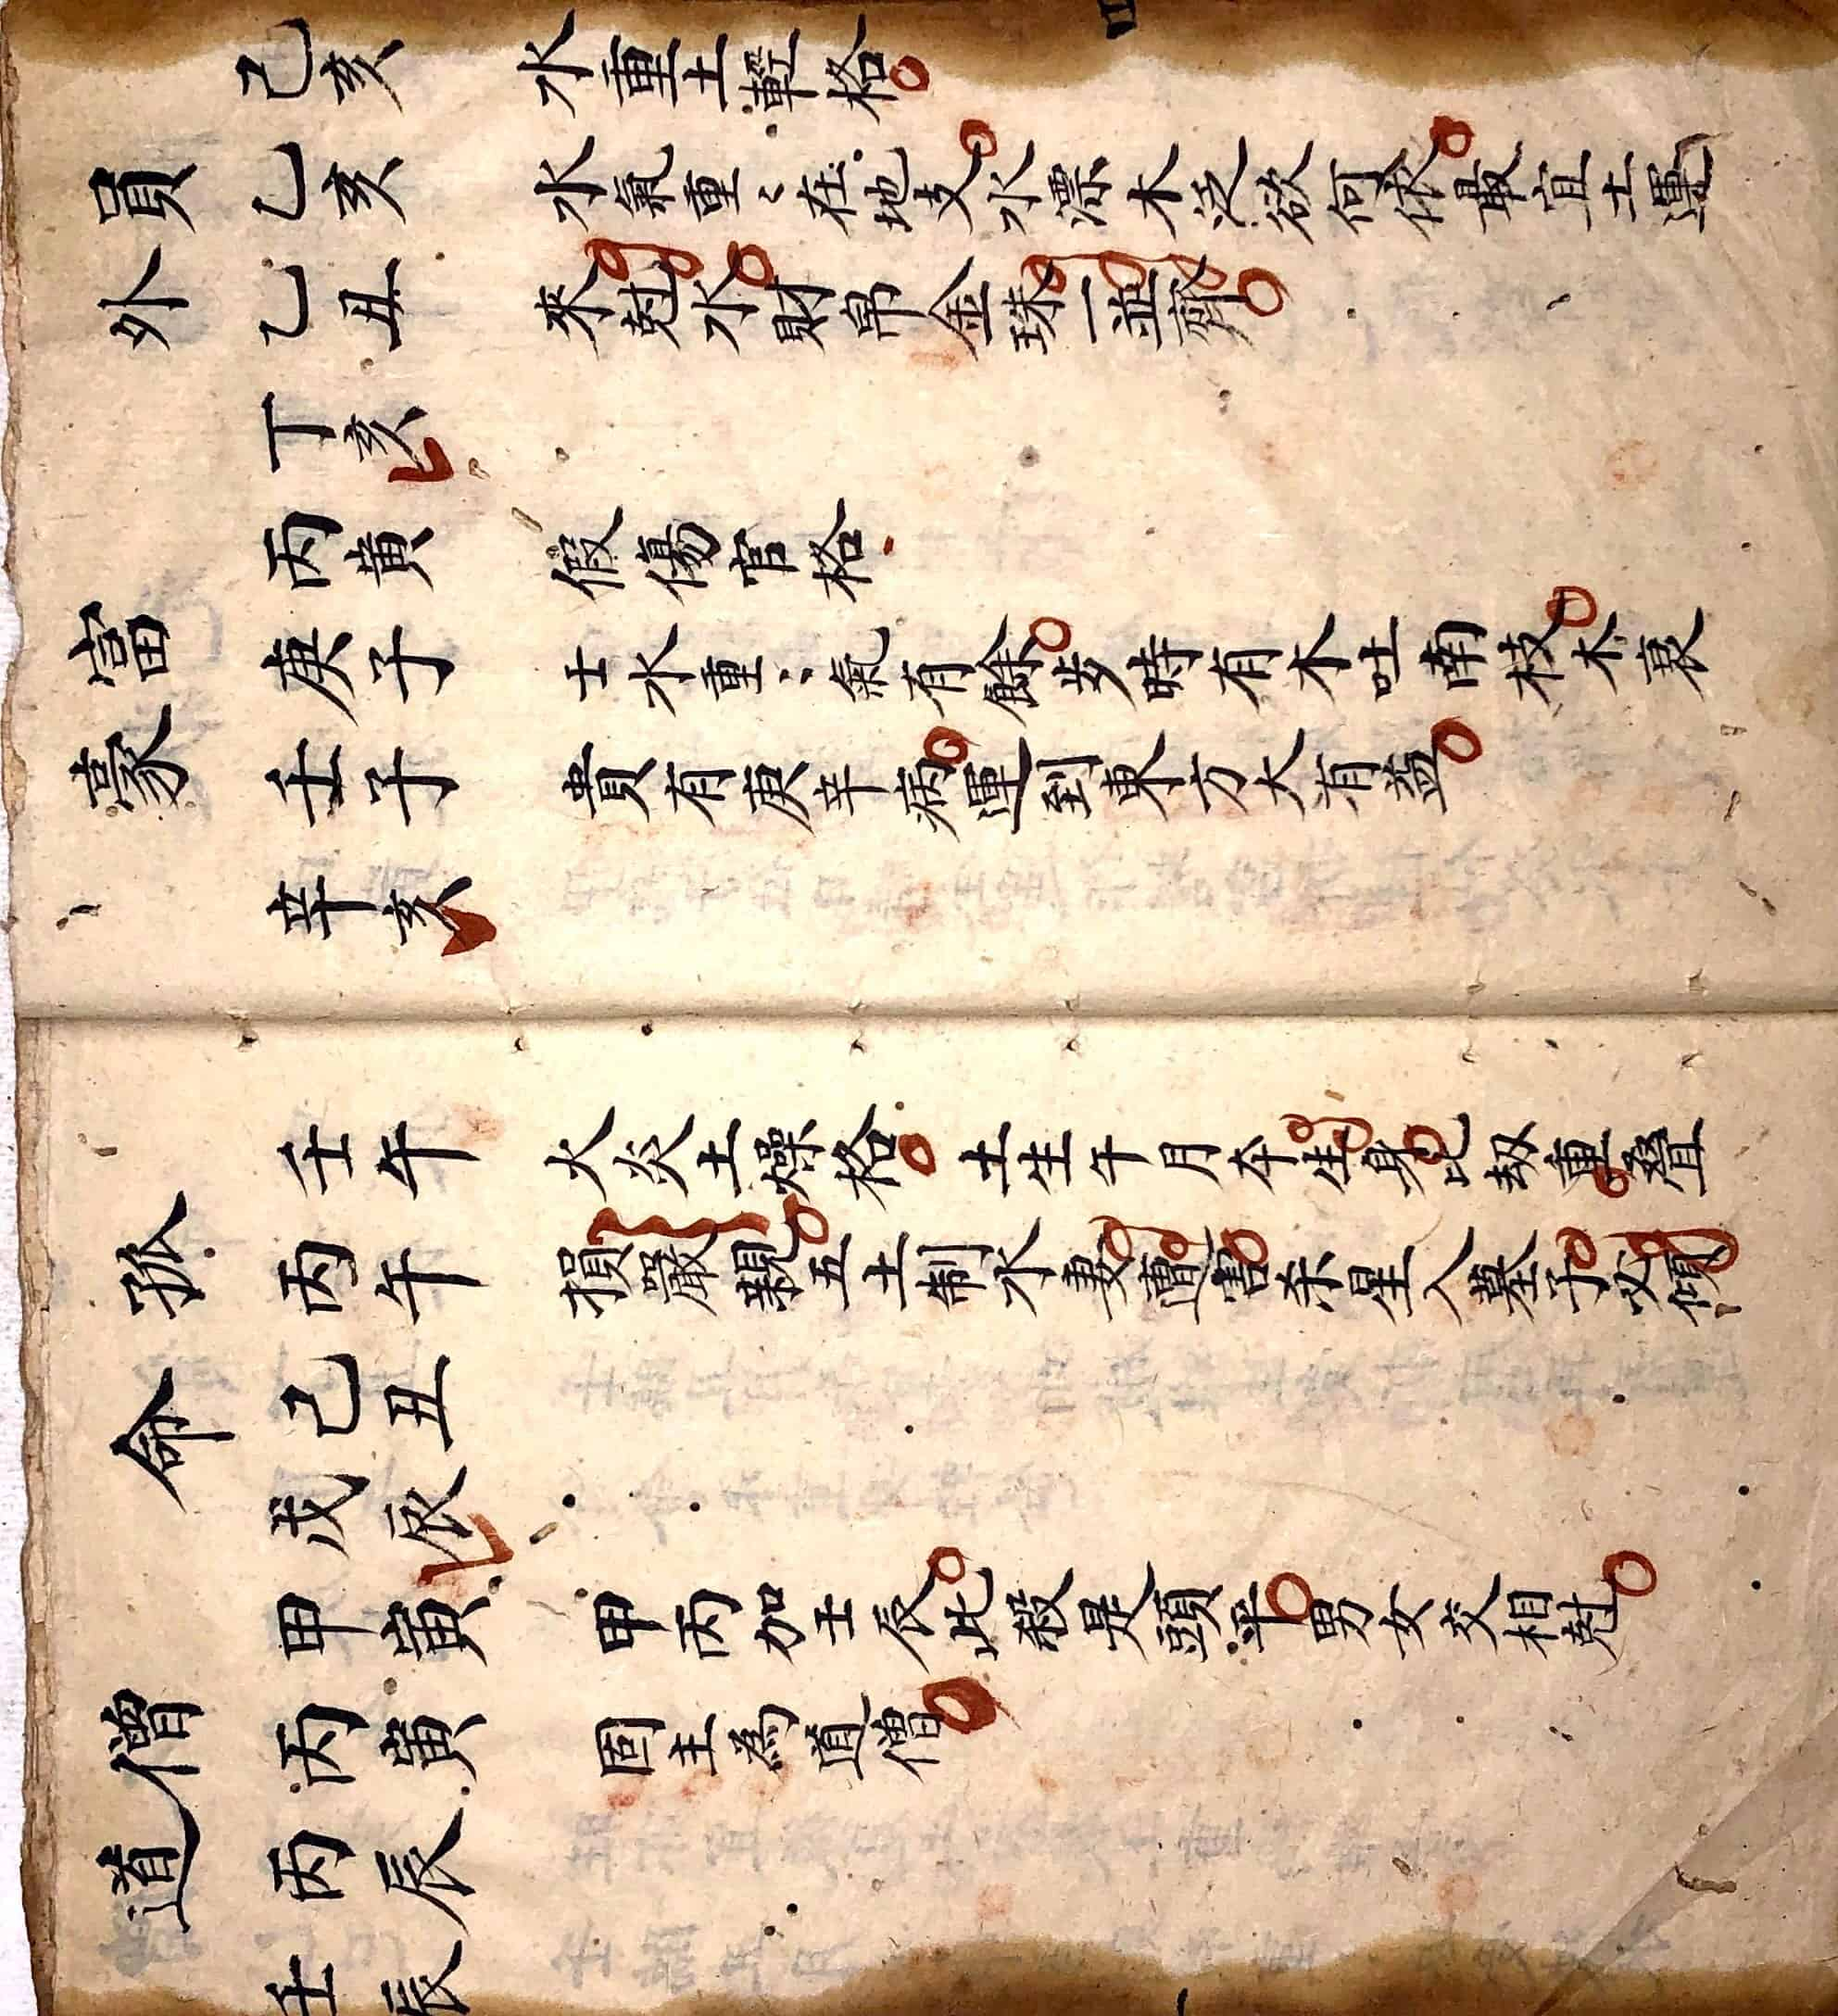 員外
己亥 水重土輕格
乙亥 水氣重〻在地支水漂木泛欲何依最宜土運
乙丑 來尅水財帛金珠一並齊
丁亥
富豪
丙寅 假傷官格
庚子 土水重〻氣有餘步時有木吐南枝木衰
壬子 貴有庚辛病運到東方大有益
辛亥
孤命
壬午 火炎土燥格 土生午月本生身比刼重疊
丙午 損嚴親五土制水妻遭害杀星入墓子必傾
己丑
戊辰
僧道
甲寅 甲丙加壬辰此殺是頭平男女交相尅
丙寅 固主為道僧
丙辰
壬辰